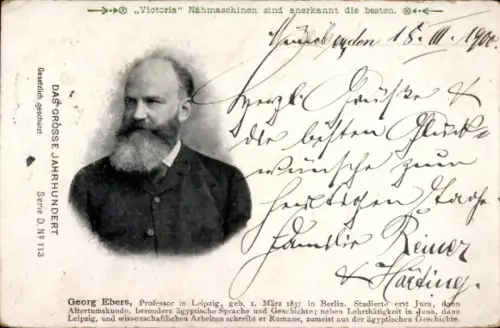 „Victoria" Nähmaschinen sind anerkannt die besten.
18. III. 1900.
Herzl. Grüße &
die besten Glück-
wünsche zum
heutigen Tage
Familie Reiner
& Härting.
DAS GROSSE JAHRHUNDERT
Gesetzlich geschützt.
Serie D. No 113
Georg Ebers, Professor in Leipzig, geb. 1. März 1837 in Berlin. Studierte erst Jura, dann
Altertumskunde, besonders ägyptische Sprache und Geschichte; neben Lehrthätigkeit in Jena, dann
Leipzig, und wissenschaftlichen Arbeiten schreibt er Romane, zumeist aus der ägyptischen Geschichte.